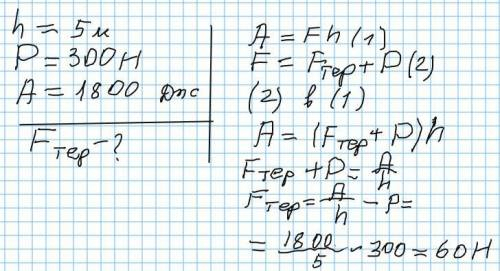 h = 5 м
P = 300 Н
A = 1800 Дж
Fтер - ?
A = Fh (1)
F = Fтер + P (2)
(2) в (1)
A = (Fтер + P)h
Fтер + P = A/h
Fтер = A/h - P =
= 1800/5 - 300 = 60 Н